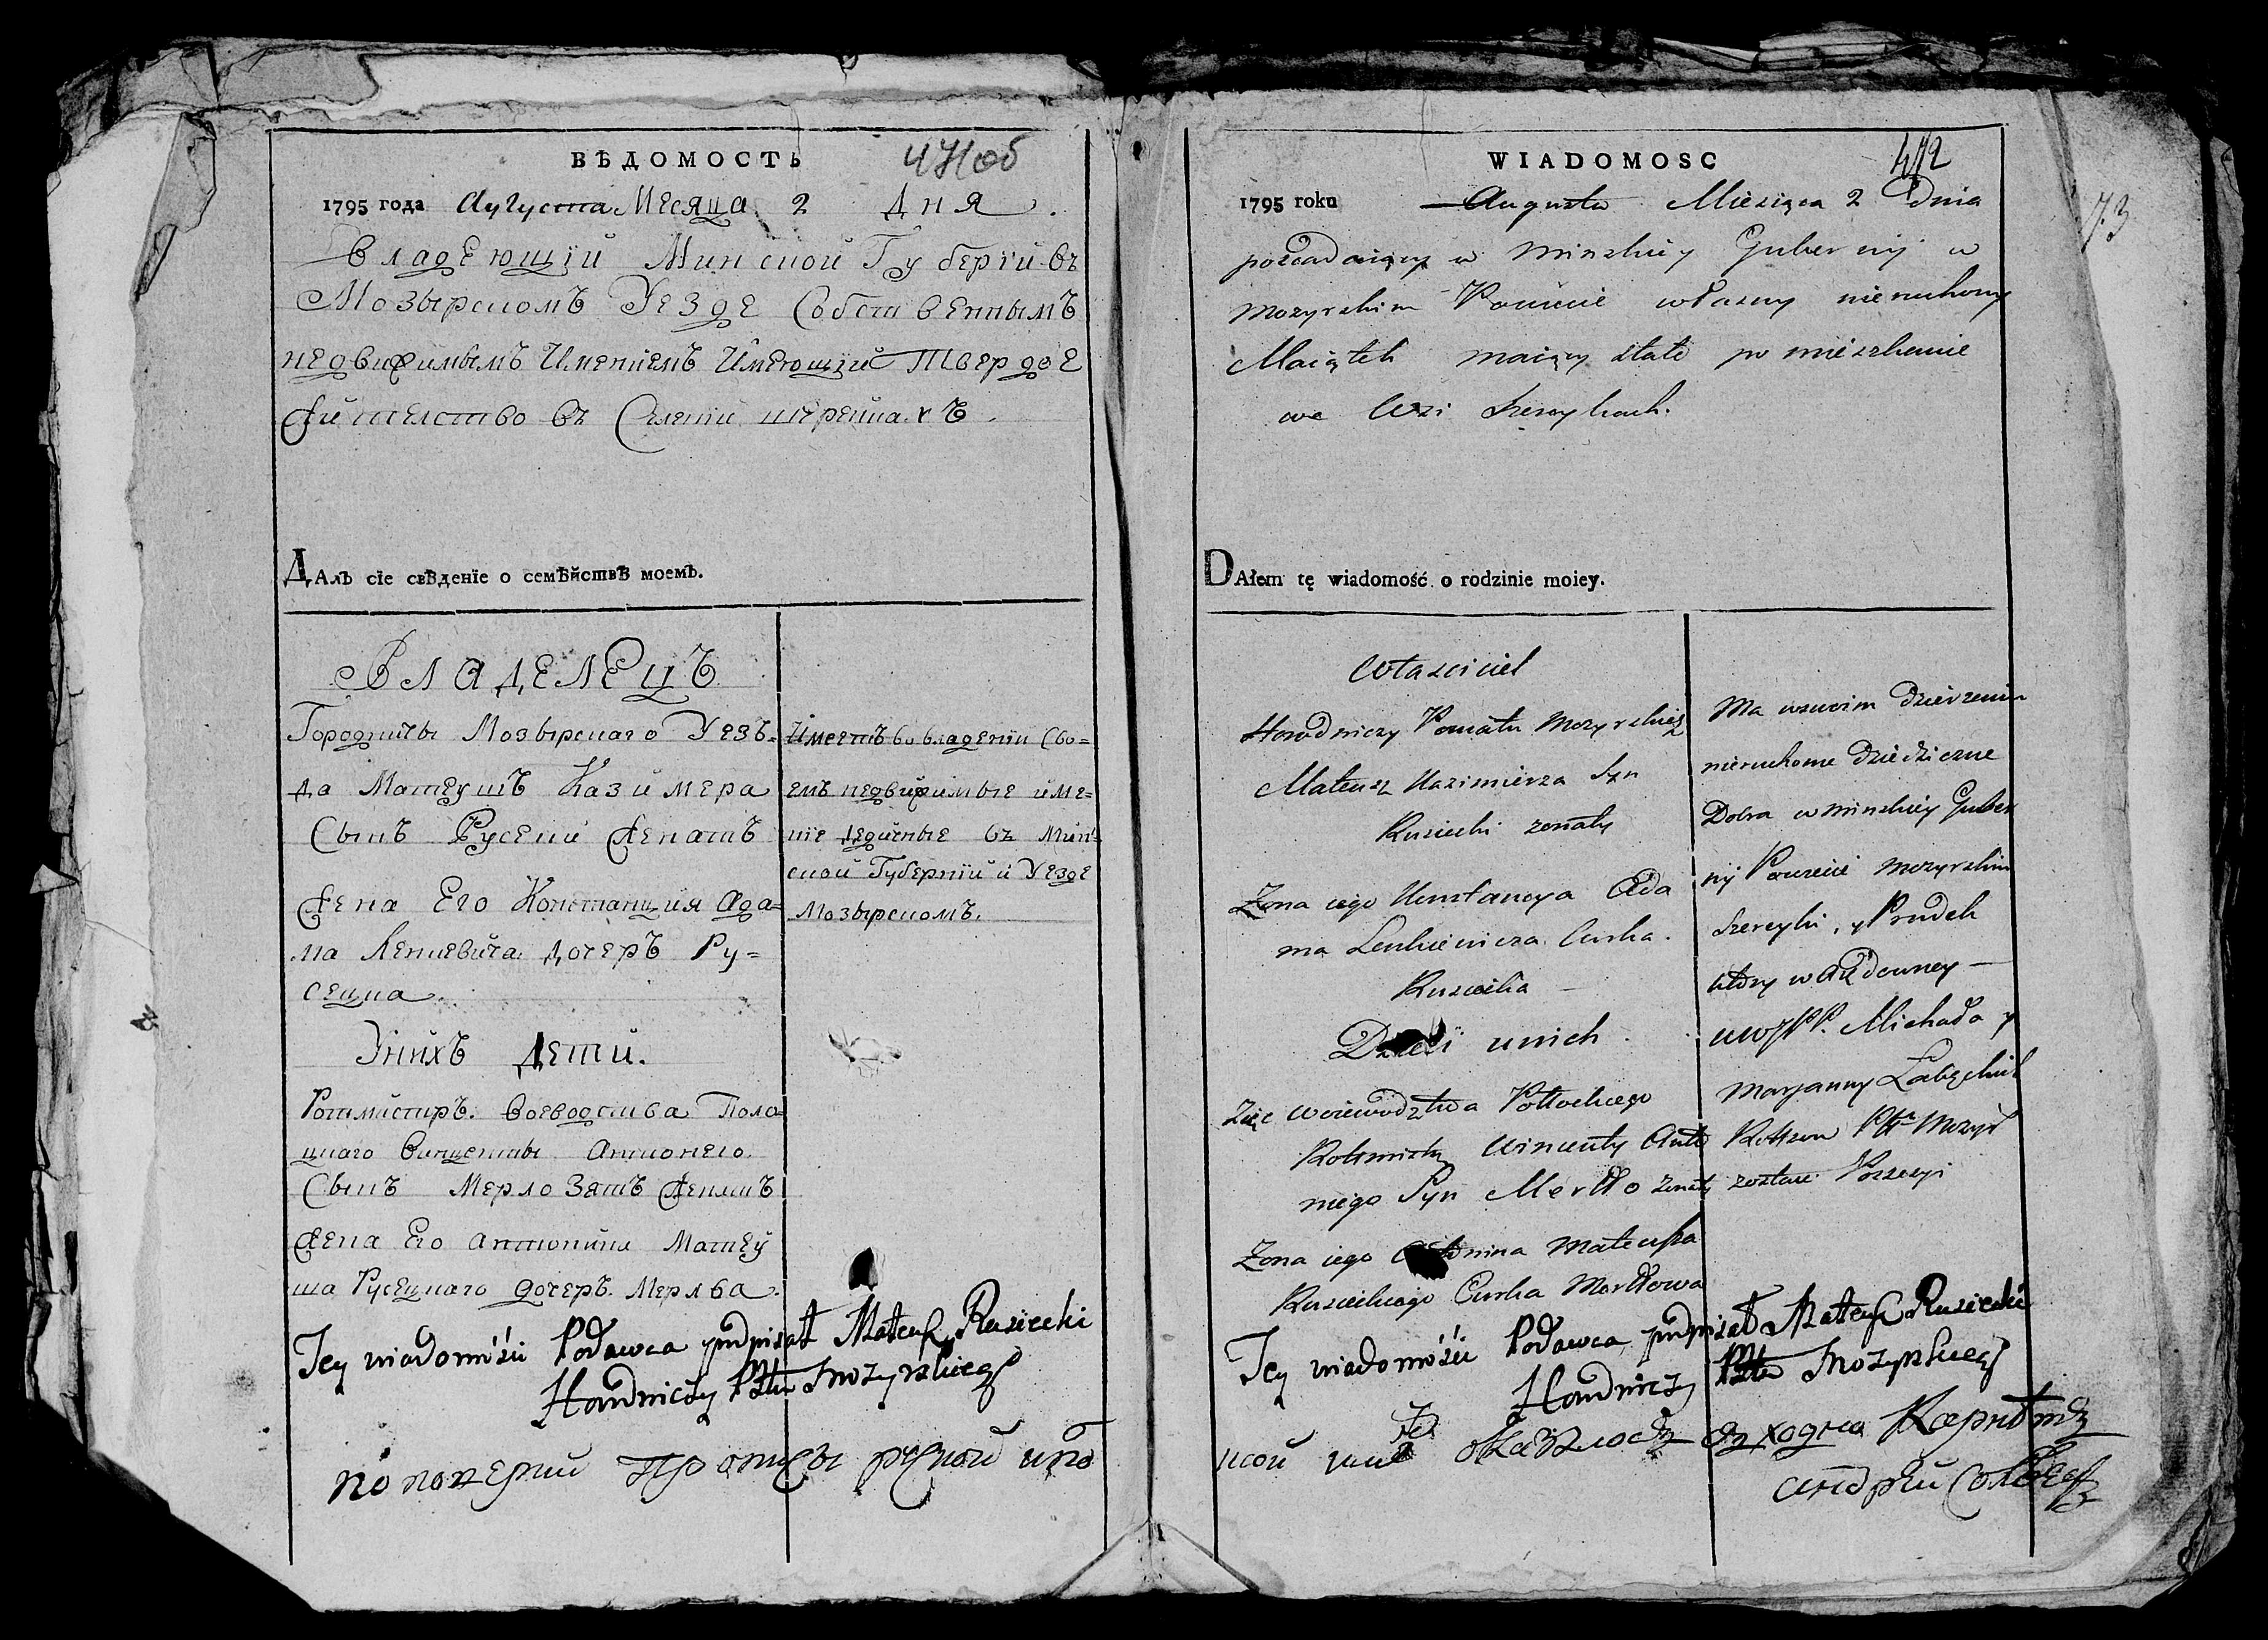 ВѢДОМОСТЬ 471 об
1795 года Августа Месяца 2 Дня.
Владеющий Минской Губерїи въ
Мозырскомъ Уезде Собственнымъ
недвижимымъ Имениемъ Имеющий Твердое
жителство въ Селении шерейкахъ.
ДАлъ сїе свѣденїе о семѣйствѣ моемъ.
ВЛАДЕЛЕЦЪ
Городничы Мозырскаго Уезъ=
да Матеушъ Казимера
Сынъ Русецки Женатъ
Жена Его Констанция Ада=
ма Ленкевича дочеръ Ру=
сецка.
Унихъ Дети.
Ротмистръ. воеводства Поло
цкаго Винценты Антонего
Сынъ Мерло Зять Женатъ
Жена Его Антонина Матеу
ша Русецкаго дочеръ. Мерлва.
Имеетъ во владении Сво=
емъ недвижимые име=
ние дедичные въ Мин=
ской Губернии и Уезде
Мозырскомъ.
Tey wiadomości Podawca podpisał Mateusz Rusiecki
Horodniczy Pttu Mozyrskiego
WIADOMOSC 472
73
1795 roku Augusta Miesiąca 2 Dnia
posiadaiący w Minskiey Gubernij w
Mozyrskim Powiecie własny nieruchomy
Maiątek maiący stałe pomieszkanie
we Wsi Szereykach.
DAłem tę wiadomość o rodzinie moiey.
Własciciel
Horodniczy Powiatu Mozyrskiego
Mateusz Kazimierza Syn
Rusiecki zonaty
Zona iego Konstancya Ada
ma Lenkiewicza Curka.
Rusiecka
Dzieci u nich.
Zięc Woiewodztwa Połockiego
Rotmistrz Wincenty Anto
niego Syn Merłło zonaty
Zona iego Antonina Mateusza
Rusieckiego Curka Merłłowa
Ma w swoim dzierzeniu
nieruchome dziedziczne
Dobra w Minskiey Guber
nij Powiecie Mozyrskim
Szereyki, y Prudek
ktory w
Michała y
Maryanny
Pttu Mozyr
zostaie Possesyi
Tey wiadomości Podawca podpisał Mateusz Rusiecki
Horodniczy Pttu Mozyrskiego